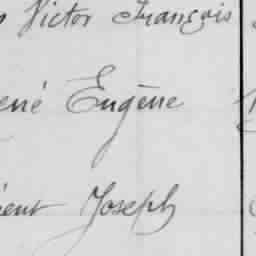 Victor François
ené Eugène
ent Joseph